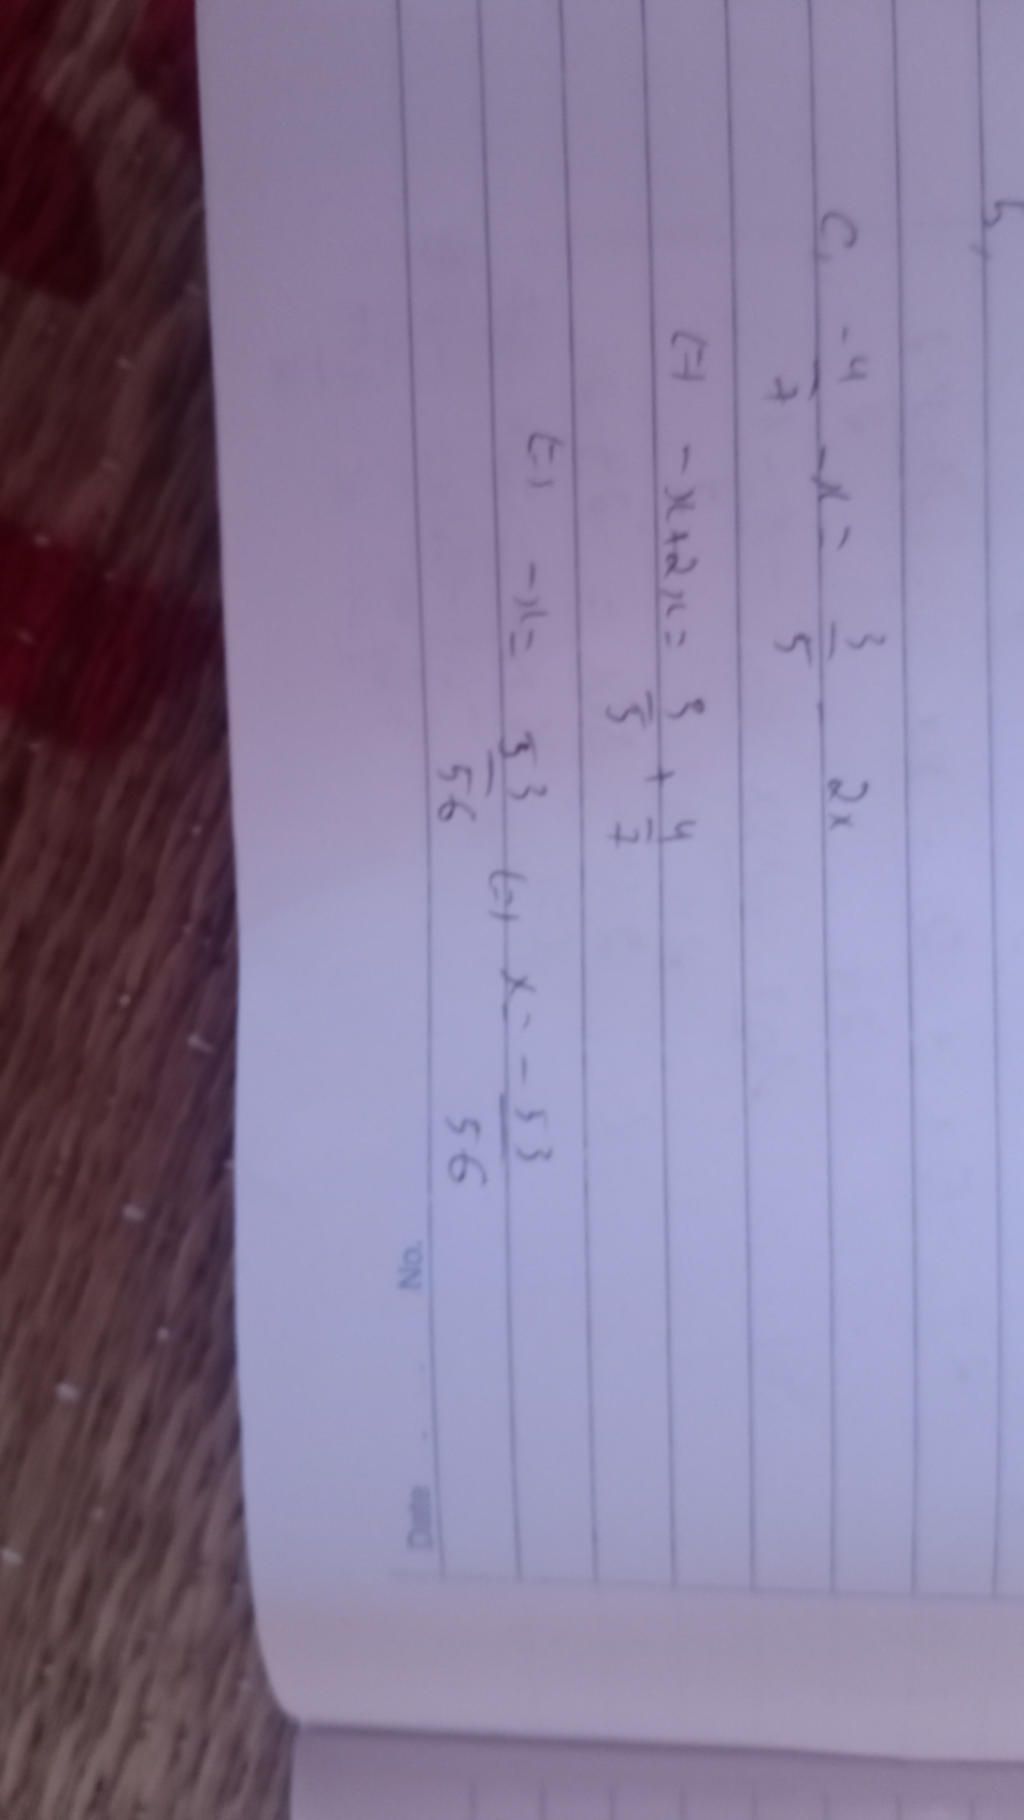 b,
C, -4/7 - x = 3/5 - 2x
(=) -x+2x = 3/5 + 4/7
(=) -x = 53/56 (=) x = -53/56
No.
Date . .